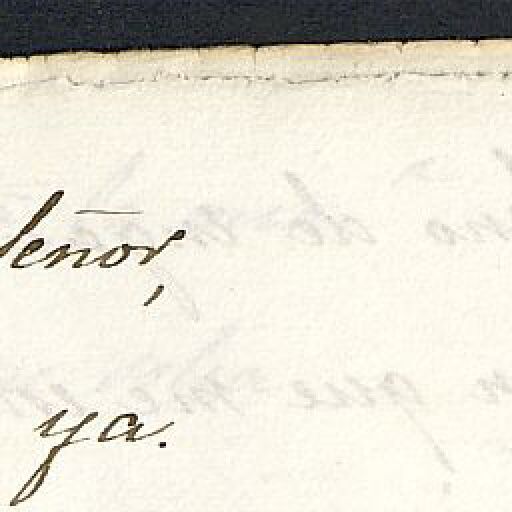 Señor,
ya.